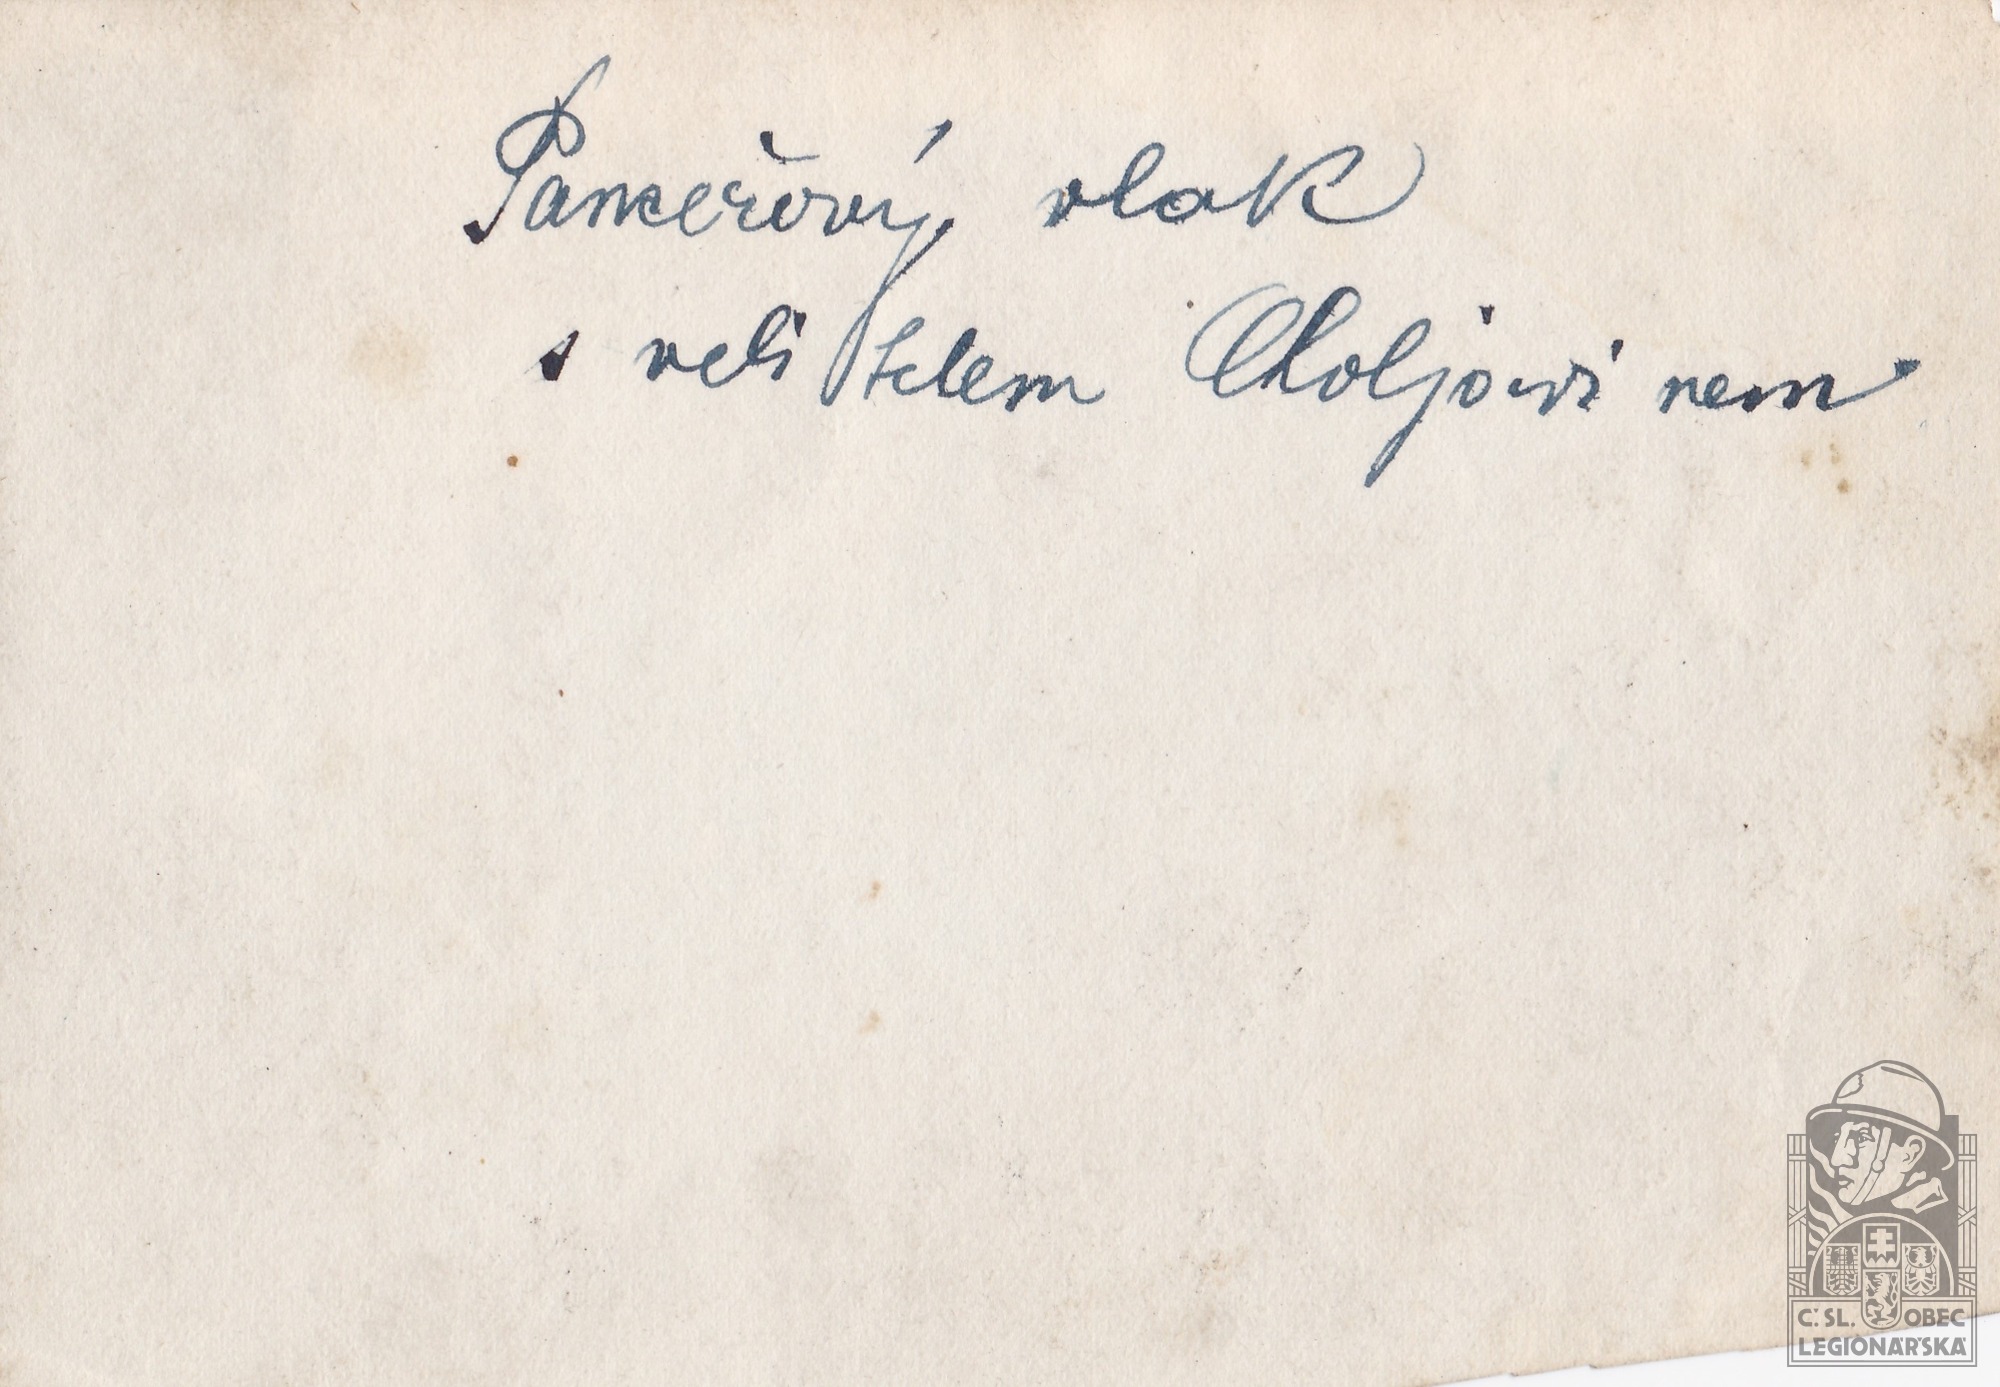 Pancéřový vlak
s velitelem Choljavinem
Č. SL. OBEC
LEGIONÁŘSKÁ